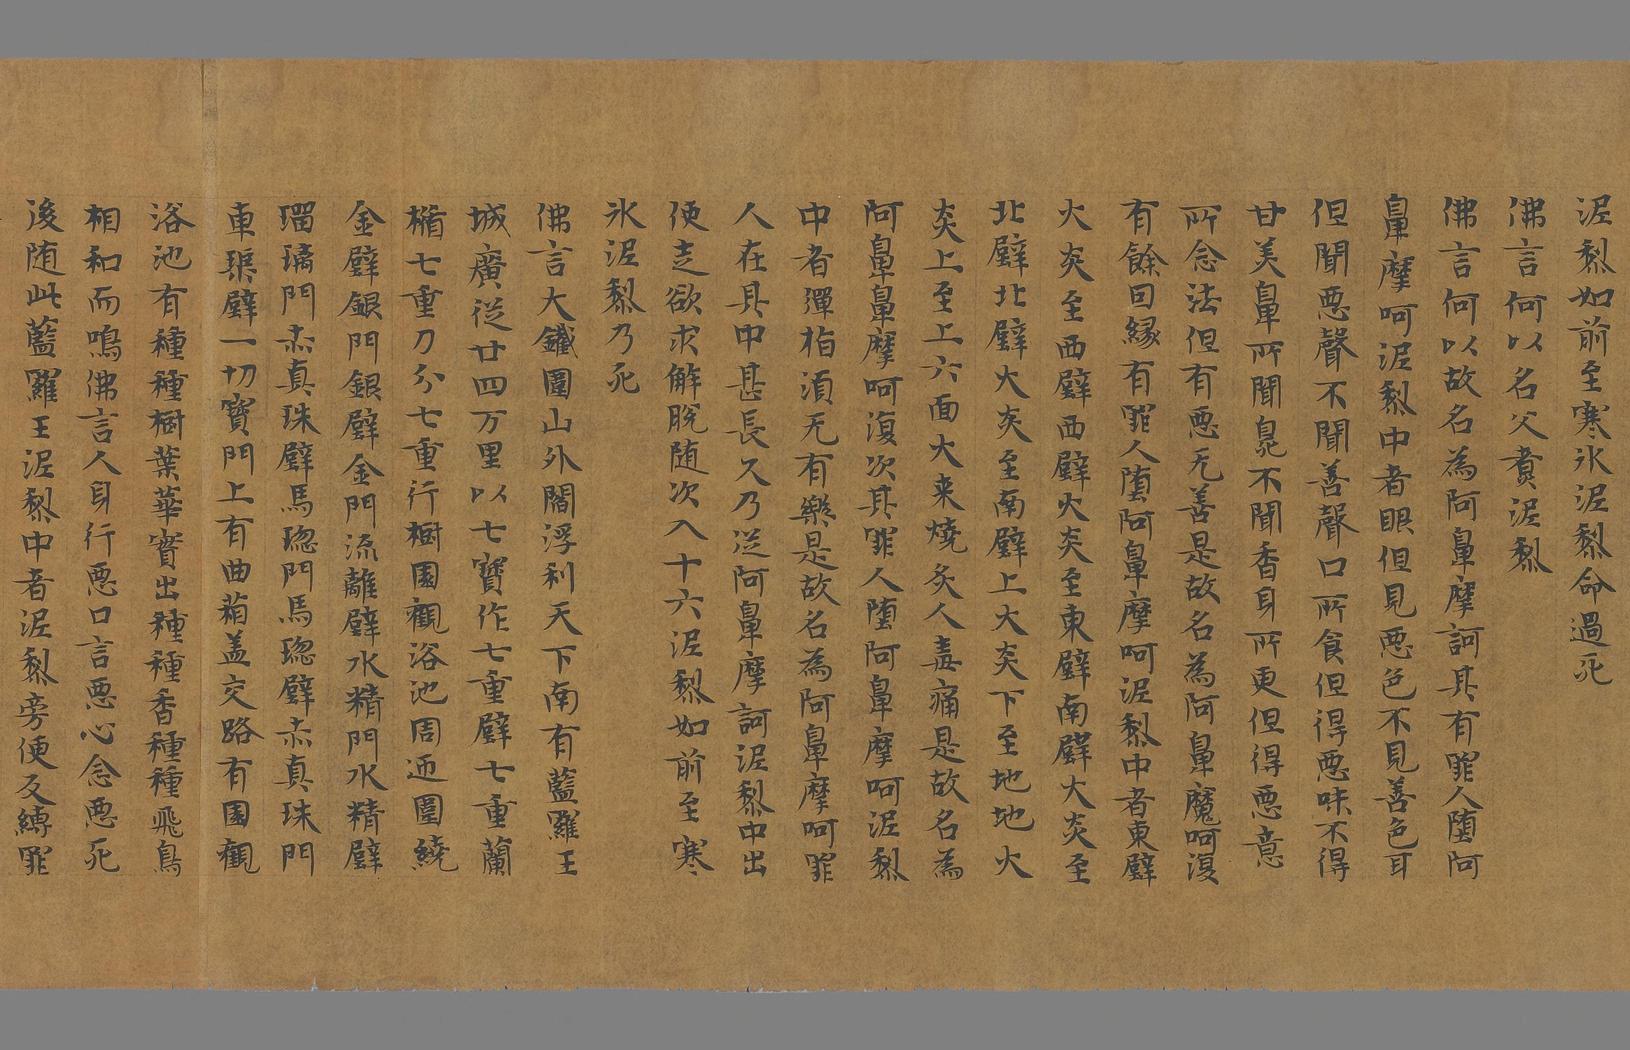 泥犁如前至寒氷泥犁命過死
佛言何以名父賁泥犁
佛言何以故名為阿鼻摩訶其有罪人堕阿
鼻摩呵泥犁中者眼但見悪色不見善色耳
但聞悪聲不聞善聲口所食但得悪味不得
甘美鼻所聞臰不聞香身所更但得悪意
所念法但有悪无善是故名為阿鼻魔呵復
有餘因緣有罪人堕阿鼻摩呵泥犁中者東壁
火炎至西壁西壁火炎至東壁南壁火炎至
北壁北壁火炎至南壁上火炎下至地地火
炎上至上六面火来燒炙人毒痛是故名為
阿鼻鼻摩呵復次其罪人堕阿鼻摩呵泥犁
中者彈指湏无有樂是故名為阿鼻摩呵罪
人在其中甚長久乃從阿鼻摩訶泥犁中出
便走欲求解脫随次入十六泥犁如前至寒
氷泥犁乃死
佛言大鐵圍山外閻浮利天下南有藍羅王
城廣從廿四万里以七寶作七重壁七重蘭
楯七重刀分七重行樹園觀浴池周迊圍繞
金壁銀門銀壁金門流離壁水精門水精壁
瑠璃門赤真珠壁馬瑙門馬瑙壁赤真珠門
車璖壁一切寶門上有曲葙盖交路有園觀
浴池有種種樹葉華實出種種香種種飛鳥
相和而鳴佛言人身行悪口言悪心念悪死
後随此藍羅王泥犁中者泥犁旁便反縛罪